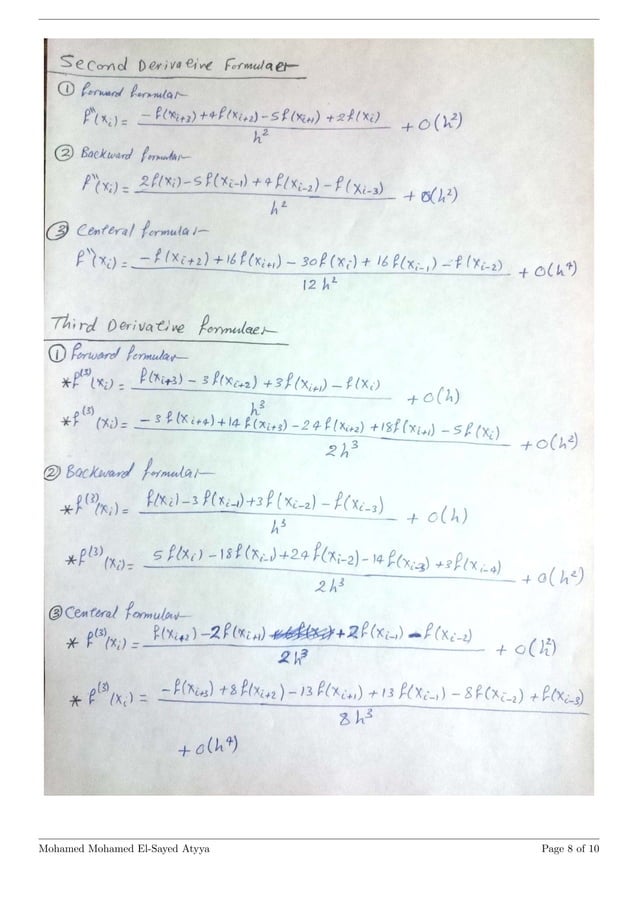 Second Derivative Formulaes
① forward formulas
f''(xi) = − f(xi+3) + 4f(xi+2) − 5f(xi+1) + 2f(xi) / h² + O(h²)
② Backward formulas
f''(xi) = 2f(xi) − 5f(xi−1) + 4f(xi−2) − f(xi−3) / h² + O(h²)
③ Centeral formulas
f''(xi) = − f(xi+2) + 16f(xi+1) − 30f(xi) + 16f(xi−1) − f(xi−2) / 12h² + O(h⁴)
Third Derivative formulaes
① forward formulas
* f⁽³⁾(xi) = f(xi+3) − 3f(xi+2) + 3f(xi+1) − f(xi) / h³ + O(h)
* f⁽³⁾(xi) = − 3f(xi+4) + 14f(xi+3) − 24f(xi+2) + 18f(xi+1) − 5f(xi) / 2h³ + O(h²)
② Backward formulas
* f⁽³⁾(xi) = f(xi) − 3f(xi−1) + 3f(xi−2) − f(xi−3) / h³ + O(h)
* f⁽³⁾(xi) = 5f(xi) − 18f(xi−1) + 24f(xi−2) − 14f(xi−3) + 3f(xi−4) / 2h³ + O(h²)
③ Centeral formulas
* f⁽³⁾(xi) = f(xi+2) − 2f(xi+1) + 2f(xi−1) − f(xi−2) / 2h³ + O(h²)
* f⁽³⁾(xi) = − f(xi+3) + 8f(xi+2) − 13f(xi+1) + 13f(xi−1) − 8f(xi−2) + f(xi−3) / 8h³
+ O(h⁴)
Mohamed Mohamed El-Sayed Atyya Page 8 of 10